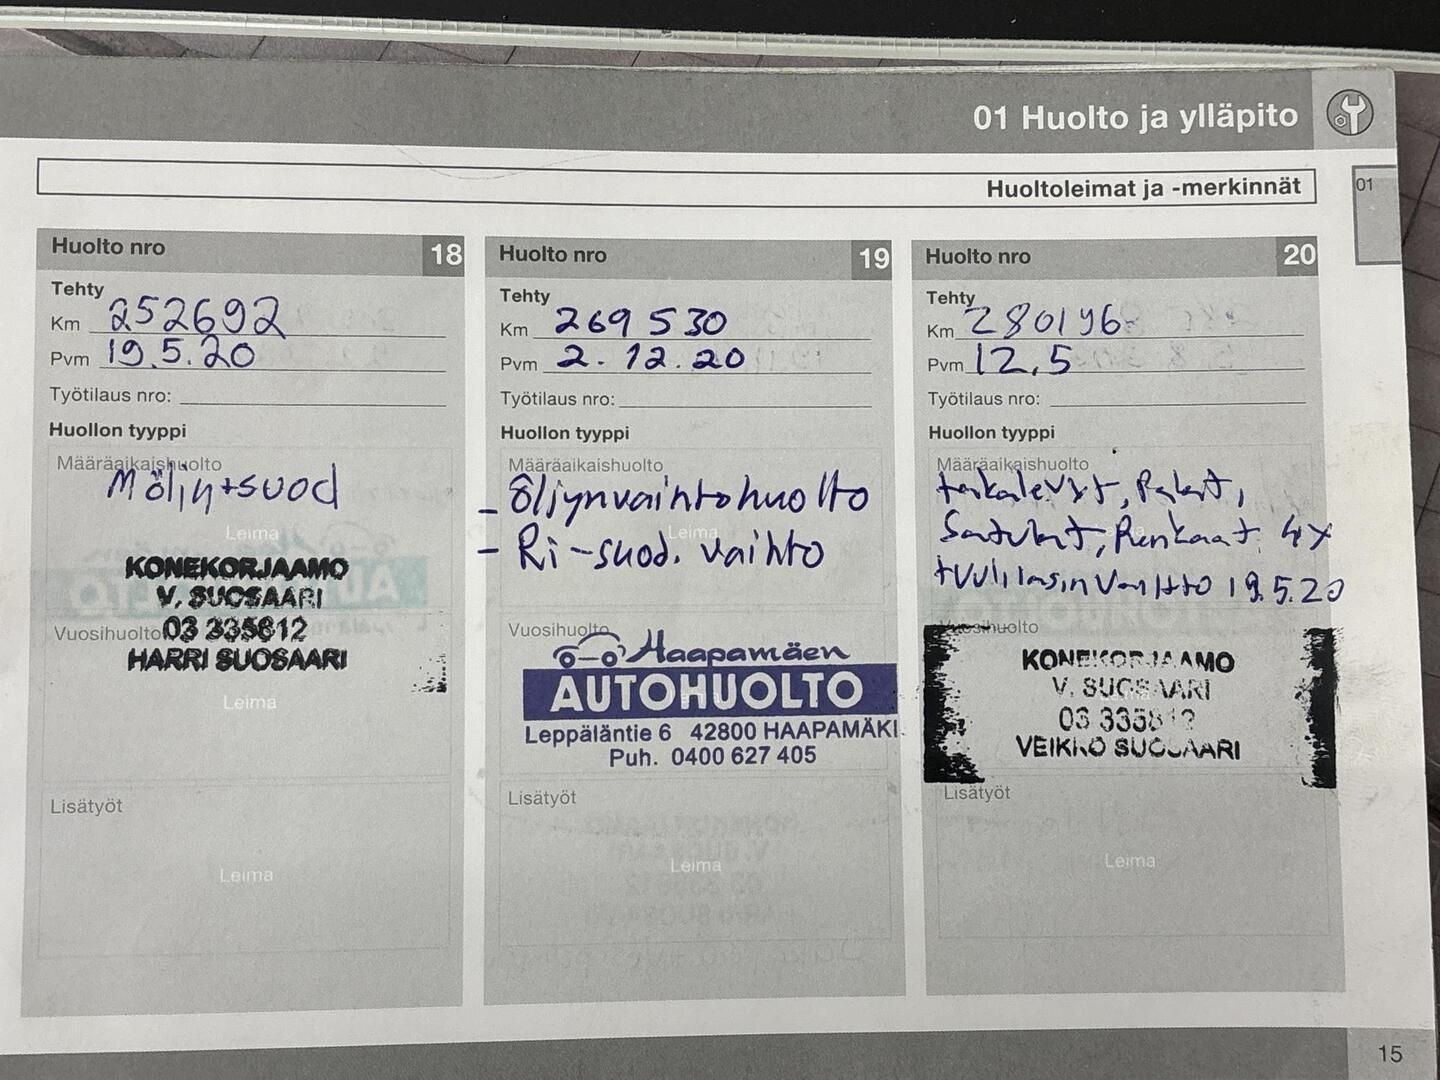 01 Huolto ja ylläpito
Huoltoleimat ja -merkinnät
01
Huolto nro 18
Tehty
Km 252692
Pvm 19.5.20
Työtilaus nro:
Huollon tyyppi
Määräaikaishuolto
Möljy+suod
Leima
KONEKORJAAMO
V. SUOSAARI
03 335812
HARRI SUOSAARI
Vuosihuolto
Leima
Lisätyöt
Leima
Huolto nro 19
Tehty
Km 269 530
Pvm 2.12.20
Työtilaus nro:
Huollon tyyppi
Määräaikaishuolto
- Öljynvaihtohuolto
Leima
- Ri-suod. vaihto
Vuosihuolto
Haapamäen
AUTOHUOLTO
Leppäläntie 6 42800 HAAPAMÄKI
Puh. 0400 627 405
Lisätyöt
Leima
Huolto nro 20
Tehty
Km 280196
Pvm 12.5
Työtilaus nro:
Huollon tyyppi
Määräaikaishuolto
Satulat, Renkaat 4x
tuulilasin vaihto 19.5.20
Vuosihuolto
KONEKORJAAMO
V. SUOSAARI
03 335812
VEIKKO SUOSAARI
Lisätyöt
Leima
15